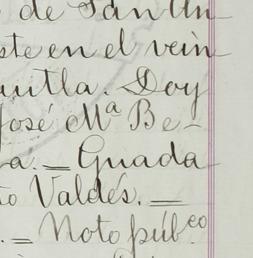 de San An
ste en el vein
autla. Doy
José Mª Be-
a. = Guada
Valdés. =
. = Noto púb.co